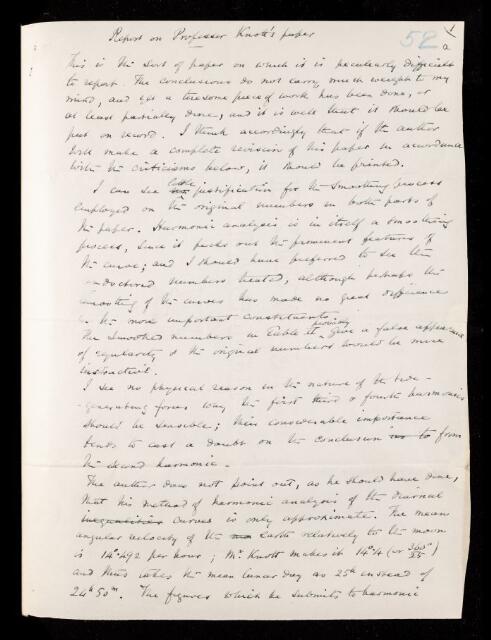 Report on Professor Knott's paper
52 a
This is the sort of paper on which it is peculiarly difficult
to report. The conclusions do not carry much weight to my
mind, and yet a tiresome piece of work has been done, or
at least partially done, and it is well that it should be
put on record. I think accordingly that if the author
will make a complete revision of his paper in accordance
with the criticisms below, it should be printed.
I can see little justification for the smoothing process
employed on the original numbers in both parts of
the paper. Harmonic analysis is in itself a smoothing
process, since it picks out the prominent features of
the curve; and I should have preferred to see the
undoctored numbers treated, although perhaps the
smoothing of the curves has made no great difference
in the more important constituents.
The smoothed numbers in Table give a false appearance
of regularity & the original numbers would be more
instructive.
I see no physical reason in the nature of the tide-
-generating forces why the first third & fourth harmonics
should be sensible; their considerable importance
tends to cast a doubt on the conclusion as to from
the second harmonic.
The author does not point out, as he should have done,
that his method of harmonic analysis of the diurnal
inequalities curves is only approximate. The mean
angular velocity of the Earth relatively to the moon
is 14°.492 per hour; Mr. Knott makes it 14°.4 (or 360°/25)
and thus takes the mean lunar day as 25h instead of
24h 50m. The figures which he submits to harmonic